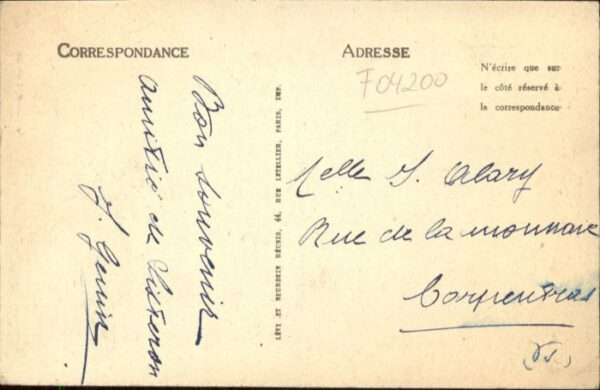 CORRESPONDANCE
ADRESSE
N'écrire que sur
le côté réservé à
la correspondance
F04200
Bon souvenir
amitié de Sisteron
LÉVY ET NEURDEIN RÉUNIS, 44, RUE LETELLIER, PARIS, IMP.
Melle S. Alary
Rue de la monnaie
Carpentras